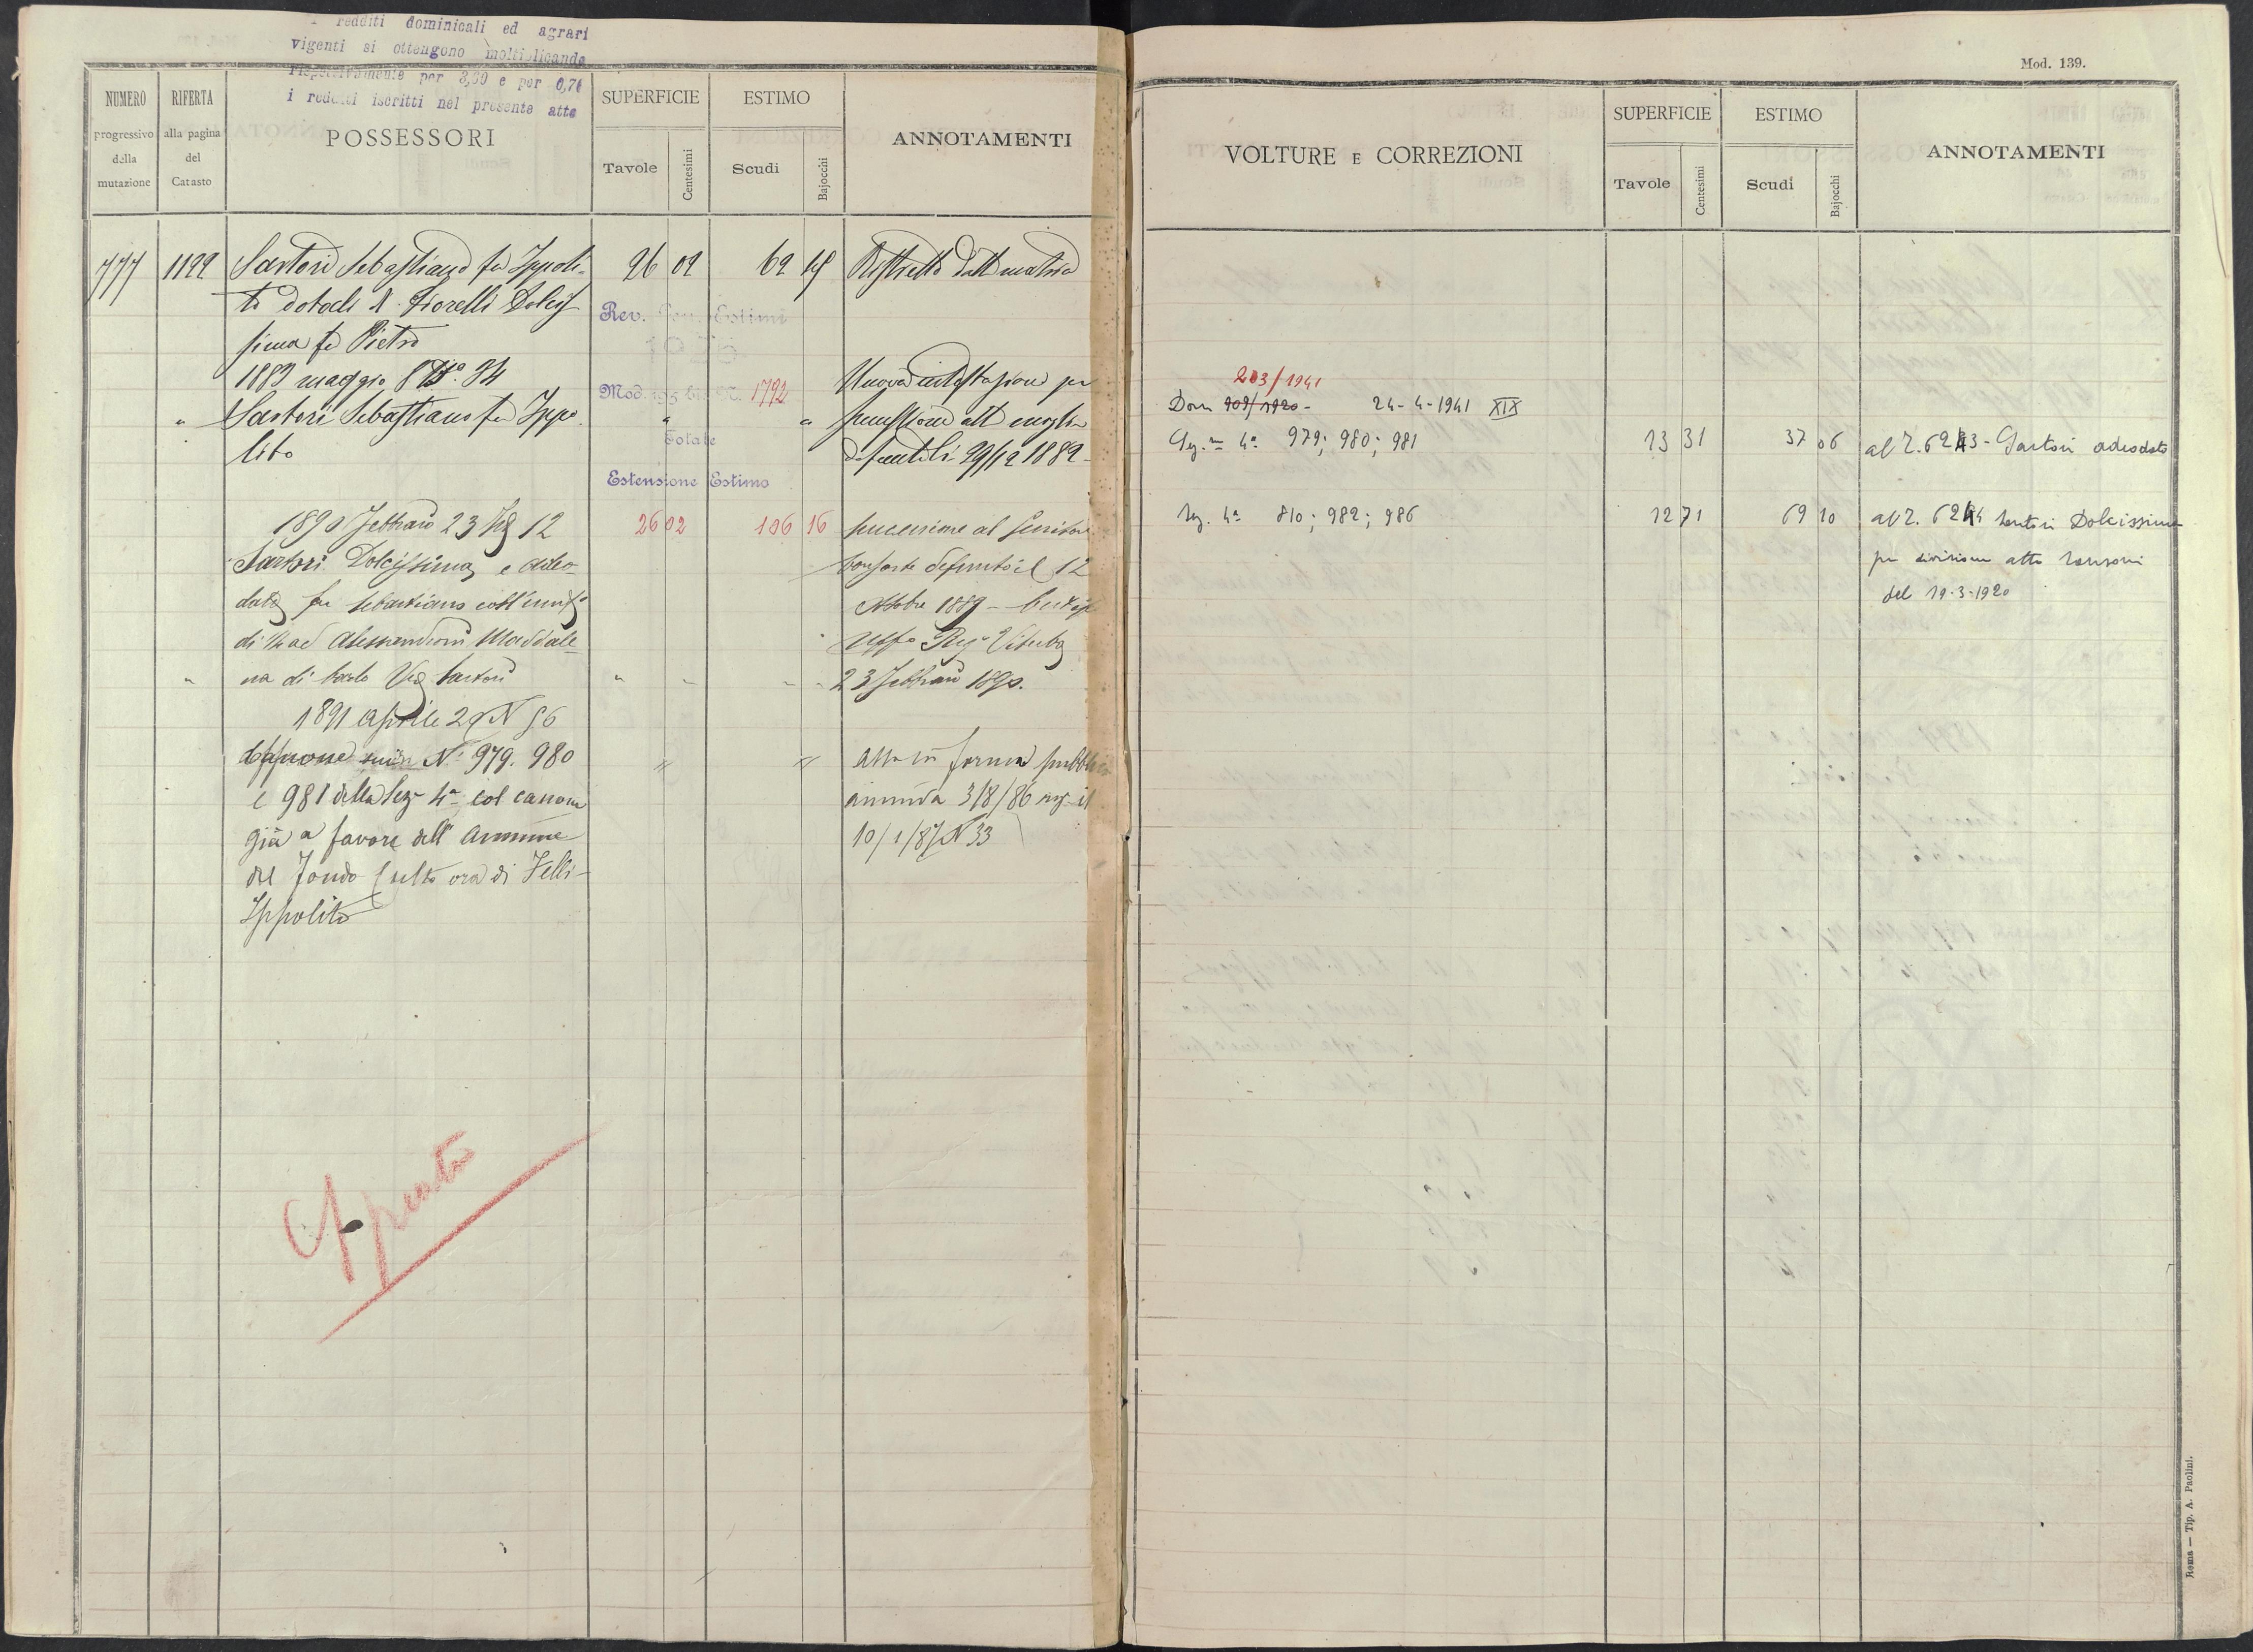 redditi dominicali ed agrari
vigenti si ottengono moltiplicando
rispettivamente per 3,60 e per 0,76
i redditi iscritti nel presente atto
NUMERO
progressivo
della
mutazione
RIFERTA
alla pagina
del
Catasto
POSSESSORI
SUPERFICIE
Tavole
Centesimi
ESTIMO
Scudi
Bajocchi
ANNOTAMENTI
777 1122 Sartori Sebastiano fu Ippoli- 26 02 62 15
to dotali di Fiorelli Dolcis
sima fu Pietro
Rev. Gen. Estimi
1883 maggio 8 N.º 34
Mod. N. 1792
Nuova intestazione per
" Sartori Sebastiano fu Ippo " "
lito
Totale
29/12 1882
Estensione Estimo
1890 Febbraio 23 12
26 02 106 16 successione al
Sartori Dolcissima e Adeo-
consorte defunto il 12
dato fu Sebastiano coll'usuf.º
Ottobre 1889
di 1/4 ad Alessandroni Maddale-
Reg.º Viterbo
" na di Carlo Ved. Sartori " " " "
23 Febbraio 1890.
1891 Aprile 29 N 56
N.i 979. 980 " "
Atto in forma pubblica
e 981 della Sez. 4ª col canone
3/8/86 reg. il
già a favore dell'Amm.ne
10/1/87 N 33
del Fondo Culto ora di Zelli-
Ippolito
Spento
Mod. 139.
VOLTURE E CORREZIONI
SUPERFICIE
Tavole
Centesimi
ESTIMO
Scudi
Bajocchi
ANNOTAMENTI
203/1941
Dom 909/1920 - 24-4-1941 XIX
Sez.ne 4ª 979; 980; 981 13 31 37 06 al R. 6243 - Sartori Adeodato
Sez. 4ª 810; 982; 986 12 71 69 10 al R. 6244 Sartori Dolcissima
per divisione atto
del 19-3-1920
Roma — Tip. A. Paolini.